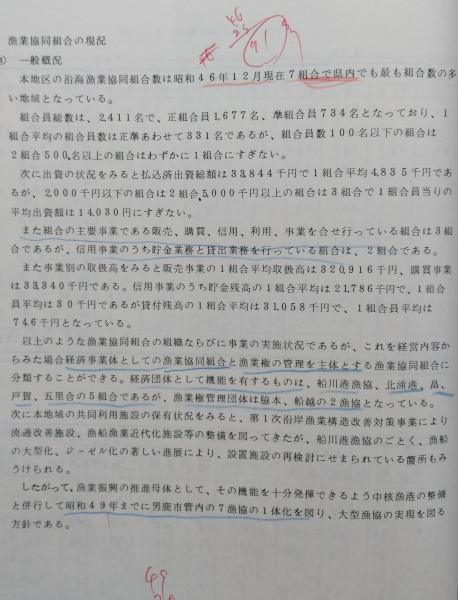 46
25
71
漁業協同組合の現況
一般概況
本地区の沿海漁業協同組合数は昭和46年12月現在7組合で県内でも最も組合数の多
い地域となっている。
組合員総数は、2,411名で、正組合員1,677名、準組合員734名となっており、1
組合平均の組合員数は正準あわせて331名であるが、組合員数100名以下の組合は
2組合500名以上の組合はわずかに1組合にすぎない。
次に出資の状況をみると払込済出資総額は33,844千円で1組合平均4,835千円であ
るが、2,000千円以下の組合は2組合、5,000千円以上の組合は3組合で1組合員当りの
平均出資額は14,030円にすぎない。
また組合の主要事業である販売、購買、信用、利用、事業を合せ行っている組合は3組
合であるが、信用事業のうち貯金業務と貸出業務を行っている組合は、2組合である。
また事業別の取扱高をみると販売事業の1組合平均取扱高は320,916千円、購買事業
は33,340千円である。信用事業のうち貯金残高の1組合平均は21,786千円で、1組合
員平均は30千円であるが貸付残高の1組合平均は31,058千円で、1組合員平均は
746千円となっている。
以上のような漁業協同組合の組織ならびに事業の実施状況であるが、これを経営内容か
らみた場合経済事業体としての漁業協同組合と漁業権の管理を主体とする漁業協同組合に
分類することができる。経済団体として機能を有するものは、船川港漁協、北浦港、畠、
戸賀、五里合の5組合であるが、漁業権管理団体は脇本、船越の2漁協となっている。
次に本地域の共同利用施設の保有状況をみると、第1次沿岸漁業構造改善対策事業により
流通改善施設、漁船漁業近代化施設等の整備を図ってきたが、船川港漁協のごとく、漁船
の大型化、ジーゼル化の著しい進展により、設置施設の再検討にせまられている箇所もみ
うけられる。
したがって、漁業振興の推進母体として、その機能を十分発揮できるよう中核漁港の整備
と併行して昭和49年までに男鹿市管内の7漁協の1体化を図り、大型漁協の実現を図る
方針である。
49